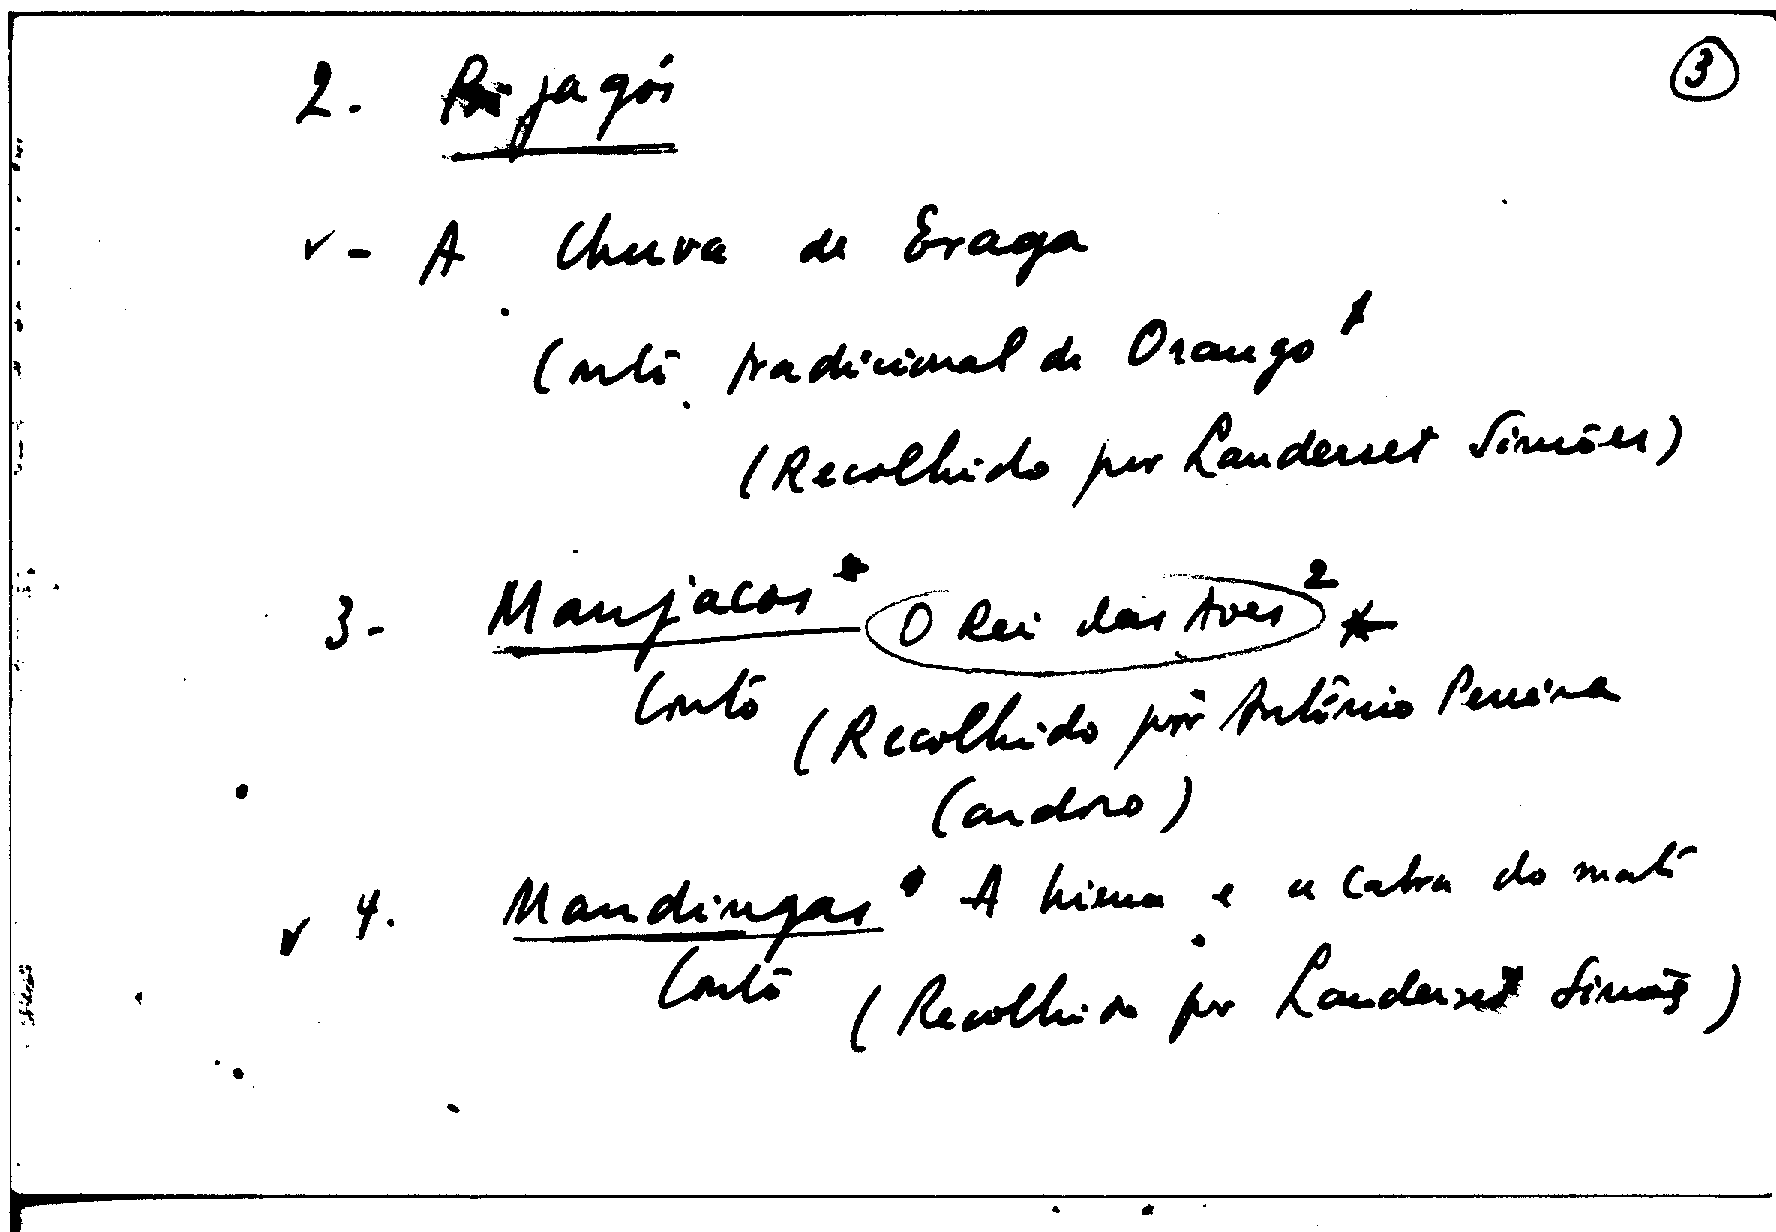 3
2. Bijagós
✓ - A Chuva de Eraga
Conto tradicional de Orango *
(Recolhido por Landerset Simões)
3- Manjacos * O Rei das Aves 2 *
Conto (Recolhido por António Pereira
Cardoso)
✓ 4. Mandingas * A hiena e a Cabra do mato
Conto (Recolhido por Landerset Simões)